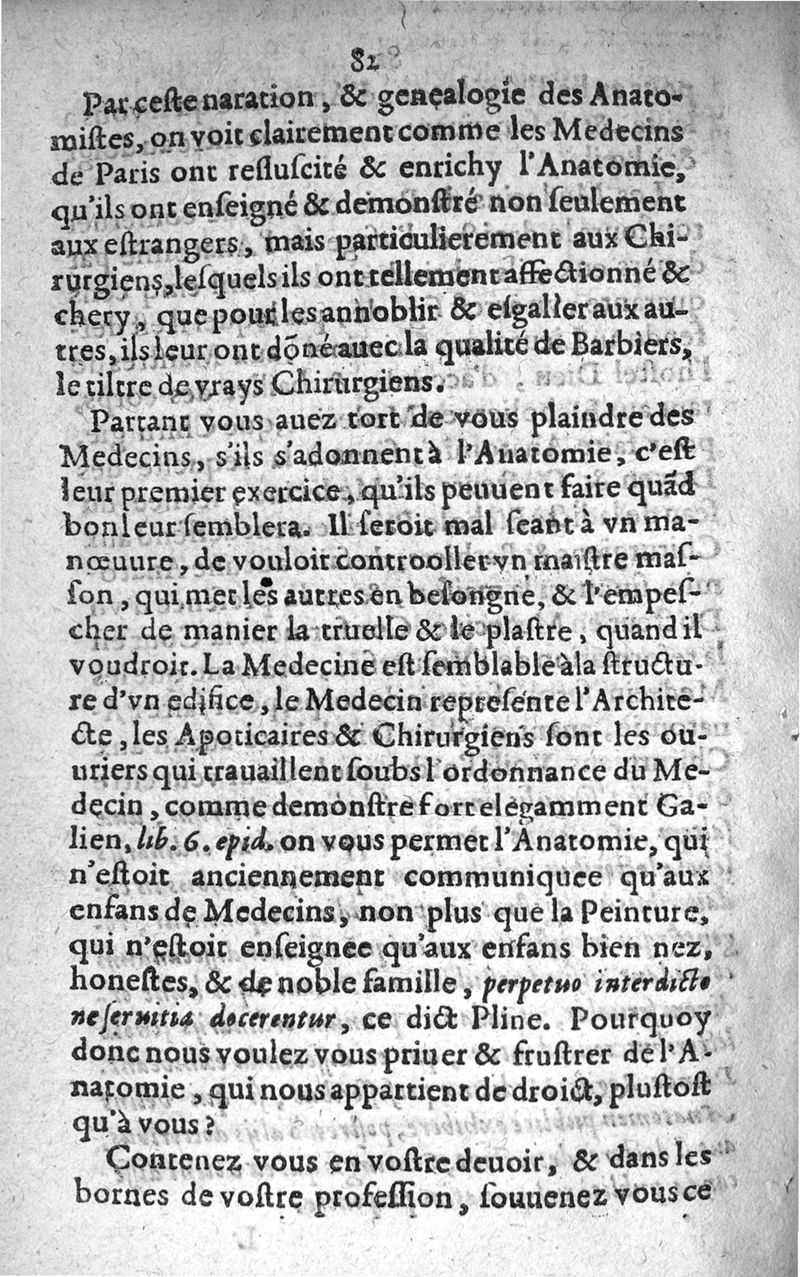 82
Par ceste naration, & genealogie des Anato-
miſtes, on voit clairement comme les Medecins
de Paris ont reſſuſcité & enrichy l'Anatomie,
qu'ils ont enſeigné & demonſtré non ſeulement
aux eſtrangers, mais particulierement aux Chi-
rurgiens, leſquels ils ont tellement affectionné &
chery, que pour les annoblir & eſgaller aux au-
tres, ils leur ont dõné auec la qualité de Barbiers,
le tiltre de vrays Chirurgiens.
Partant vous auez tort de vous plaindre des
Medecins, s'ils s'adonnent à l'Anatomie, c'eſt
leur premier exercice, qu'ils peuuent faire quãd
bon leur ſemblera. Il ſeroit mal ſeant à vn ma-
nœuure, de vouloir controoller vn maiſtre maſ-
ſon, qui met les autres en beſongne, & l'empeſ-
cher de manier la truelle & le plaſtre, quand il
voudroit. La Medecine eſt ſemblable à la ſtructu-
re d'vn edifice, le Medecin repreſente l'Archite-
cte, les Apoticaires & Chirurgiens ſont les ou-
uriers qui trauaillent ſoubs l'ordonnance du Me-
decin, comme demonſtre fort elegamment Ga-
lien, lib. 6. epid. on vous permet l'Anatomie, qui
n'eſtoit anciennement communiquee qu'aux
enfans de Medecins, non plus que la Peinture,
qui n'eſtoit enſeignée qu'aux enfans bien nez,
honeſtes, & de noble famille, perpetuo interdicto
ne ſeruitia docerentur, ce dict Pline. Pourquoy
donc nous voulez vous priuer & fruſtrer de l'A-
natomie, qui nous appartient de droict, pluſtoſt
qu'à vous?
Contenez vous en voſtre deuoir, & dans les
bornes de voſtre profeſſion, ſouuenez vous ce